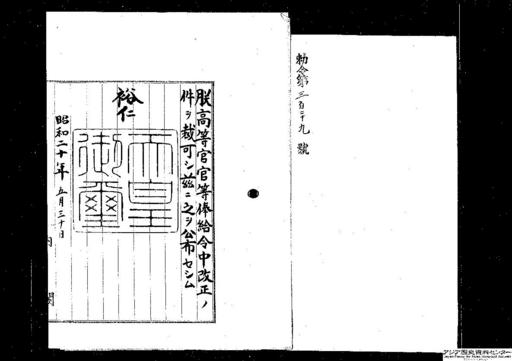 勅令第三百三十九號
朕高等官官等俸給令中改正ノ
件ヲ裁可シ茲ニ之ヲ公布セシム
裕仁
天皇
御璽
昭和二十年五月三十日
内閣
アジア歴史資料センター